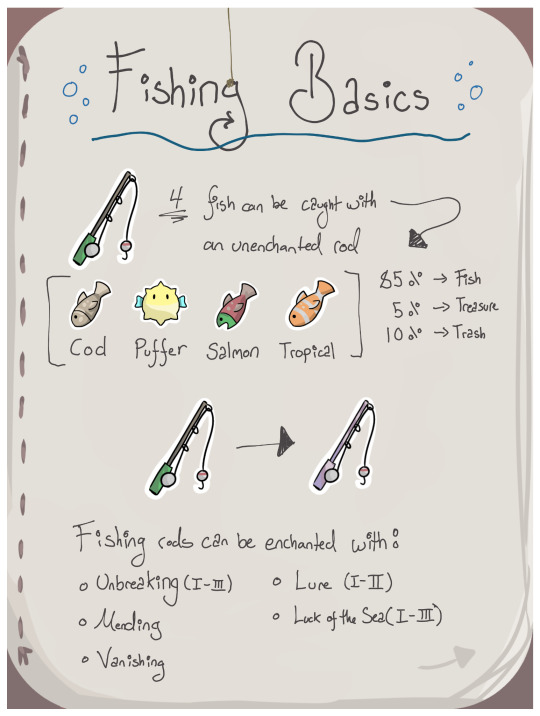 Fishing Basics
4 fish can be caught with
an unenchanted rod
85% → Fish
5% → Treasure
10% → Trash
Cod Puffer Salmon Tropical
Fishing rods can be enchanted with:
Unbreaking (I-III)
Mending
Vanishing
Lure (I-II)
Luck of the Sea (I-III)